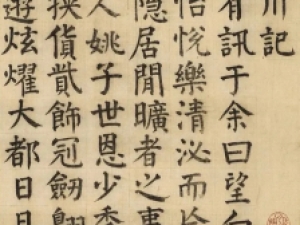 川記
有訊于余曰望
怡悅樂清泌而
隱居閒曠者之事
人姚子世恩少
挾貨貲飾冠劔
遊炫燿大都日